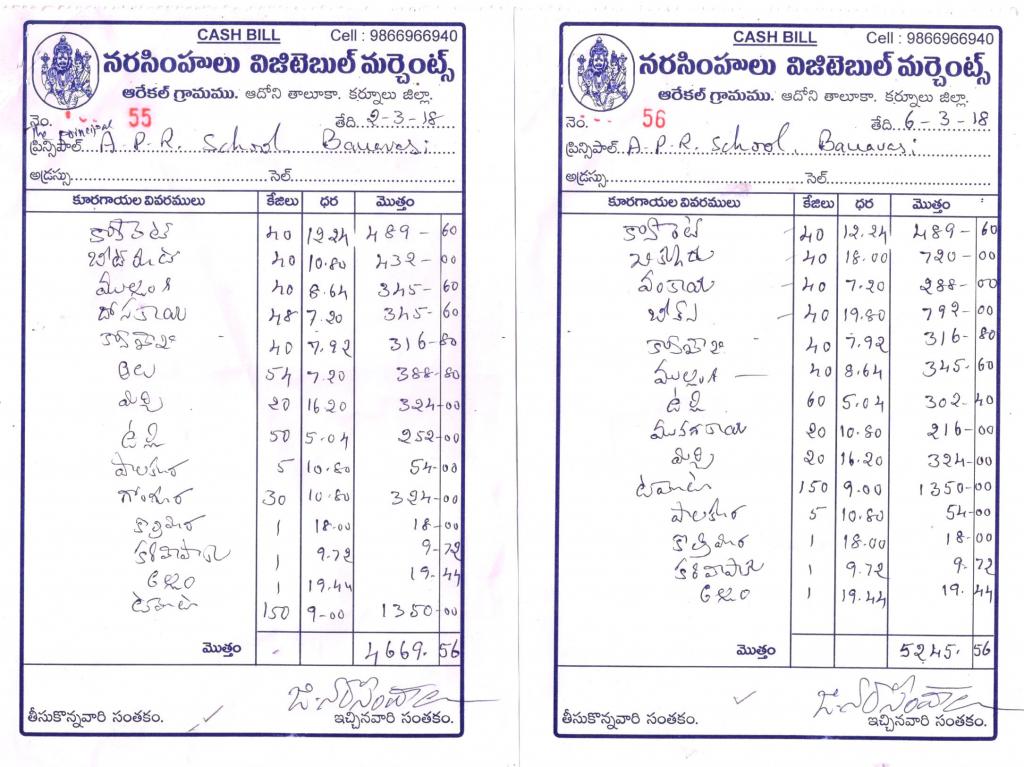 CASH BILL Cell : 9866966940
నరసింహులు విజిటెబుల్ మర్చెంట్స్
ఆరేకల్ గ్రామము. ఆదోని తాలూకా. కర్నూలు జిల్లా.
నెం. 55 తేది. 2-3-18
The Principal
ప్రిన్సిపాల్ A.P.R. School, Banavasi
అడ్రస్సు. సెల్.
కూరగాయల వివరములు కేజిలు ధర మొత్తం
క్యారెట్ 40 12.24 489-60
బీట్ రూట్ 40 10.80 432-00
ముల్లంగి 40 8.64 345-60
దోసకాయ 48 7.20 345-60
40 7.92 316-80
ఆలు 54 7.20 388-80
మిర్చి 20 16.20 324-00
ఉల్లి 50 5.04 252-00
పాలకూర 5 10.80 54-00
గోంగూర 30 10.80 324-00
కొత్తిమీర 1 18.00 18-00
కరివేపాకు 1 9.72 9-72
అల్లం 1 19.44 19-44
టమాటా 150 9-00 1350-00
మొత్తం 4669.56
తీసుకొన్నవారి సంతకం. ఇచ్చినవారి సంతకం.
CASH BILL Cell : 9866966940
నరసింహులు విజిటెబుల్ మర్చెంట్స్
ఆరేకల్ గ్రామము. ఆదోని తాలూకా. కర్నూలు జిల్లా.
నెం. 56 తేది. 6-3-18
ప్రిన్సిపాల్ A.P.R. School, Banavasi
అడ్రస్సు. సెల్.
కూరగాయల వివరములు కేజిలు ధర మొత్తం
క్యారెట్ 40 12.24 489-60
40 18.00 720-00
వంకాయ 40 7.20 288-00
బీన్స్ 40 19.80 792-00
40 7.92 316-80
ముల్లంగి 40 8.64 345-60
ఉల్లి 60 5.04 302-40
మునగకాయ 20 10.80 216-00
మిర్చి 20 16.20 324-00
టమాటా 150 9.00 1350-00
పాలకూర 5 10.80 54-00
కొత్తిమీర 1 18.00 18-00
కరివేపాకు 1 9.72 9.72
అల్లం 1 19.44 19.44
మొత్తం 5245.56
తీసుకొన్నవారి సంతకం. ఇచ్చినవారి సంతకం.